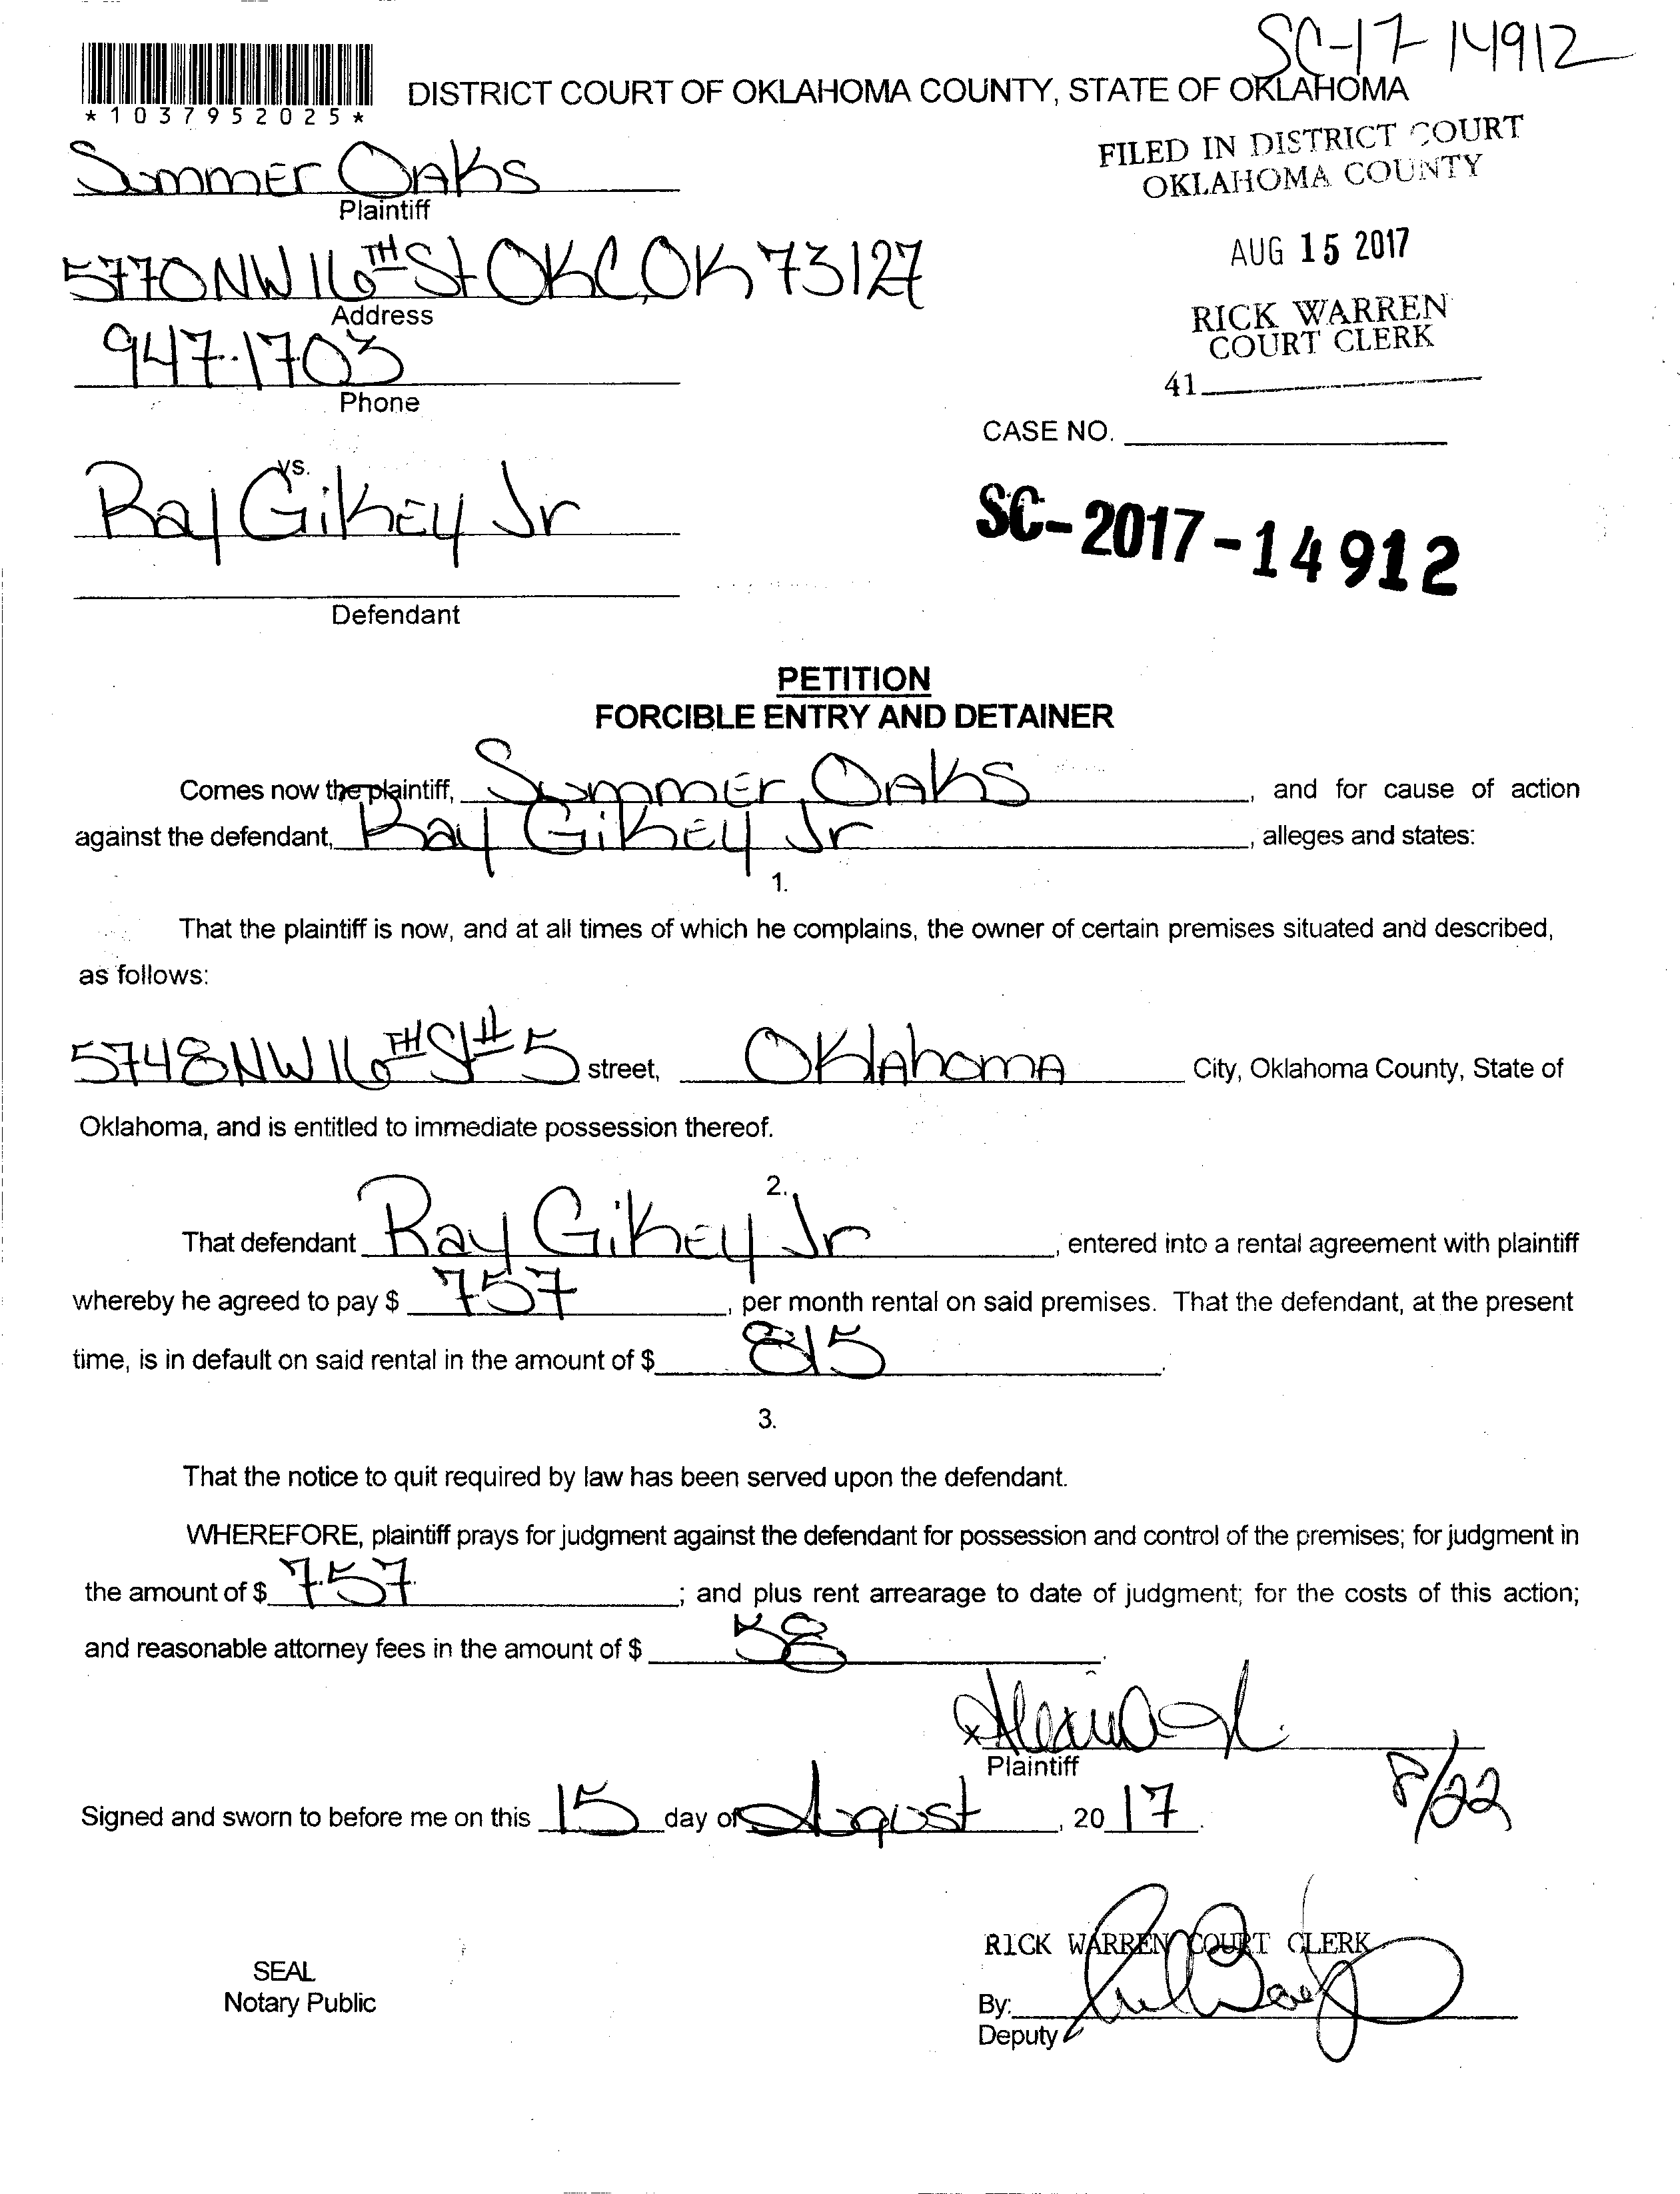 SC-17-14912
*1037952025*
DISTRICT COURT OF OKLAHOMA COUNTY, STATE OF OKLAHOMA
FILED IN DISTRICT COURT
OKLAHOMA COUNTY
Summer Oaks
Plaintiff
AUG 15 2017
5770 NW 16TH St OKC, OK 73127
Address
RICK WARREN
COURT CLERK
947-1703
41
Phone
CASE NO.
vs.
Ray Gikey Jr
SC-2017-14912
Defendant
PETITION
FORCIBLE ENTRY AND DETAINER
Comes now the plaintiff, Summer Oaks, and for cause of action
against the defendant, Ray Gikey Jr, alleges and states:
1.
That the plaintiff is now, and at all times of which he complains, the owner of certain premises situated and described,
as follows:
5748 NW 16TH St #5 street, Oklahoma City, Oklahoma County, State of
Oklahoma, and is entitled to immediate possession thereof.
2.
That defendant Ray Gikey Jr, entered into a rental agreement with plaintiff
whereby he agreed to pay $ 757, per month rental on said premises. That the defendant, at the present
time, is in default on said rental in the amount of $ 815.
3.
That the notice to quit required by law has been served upon the defendant.
WHEREFORE, plaintiff prays for judgment against the defendant for possession and control of the premises; for judgment in
the amount of $ 757; and plus rent arrearage to date of judgment; for the costs of this action;
and reasonable attorney fees in the amount of $ 58.
x
Plaintiff
8/22
Signed and sworn to before me on this 15 day of August, 2017.
RICK WARREN COURT CLERK
SEAL
Notary Public
By:
Deputy